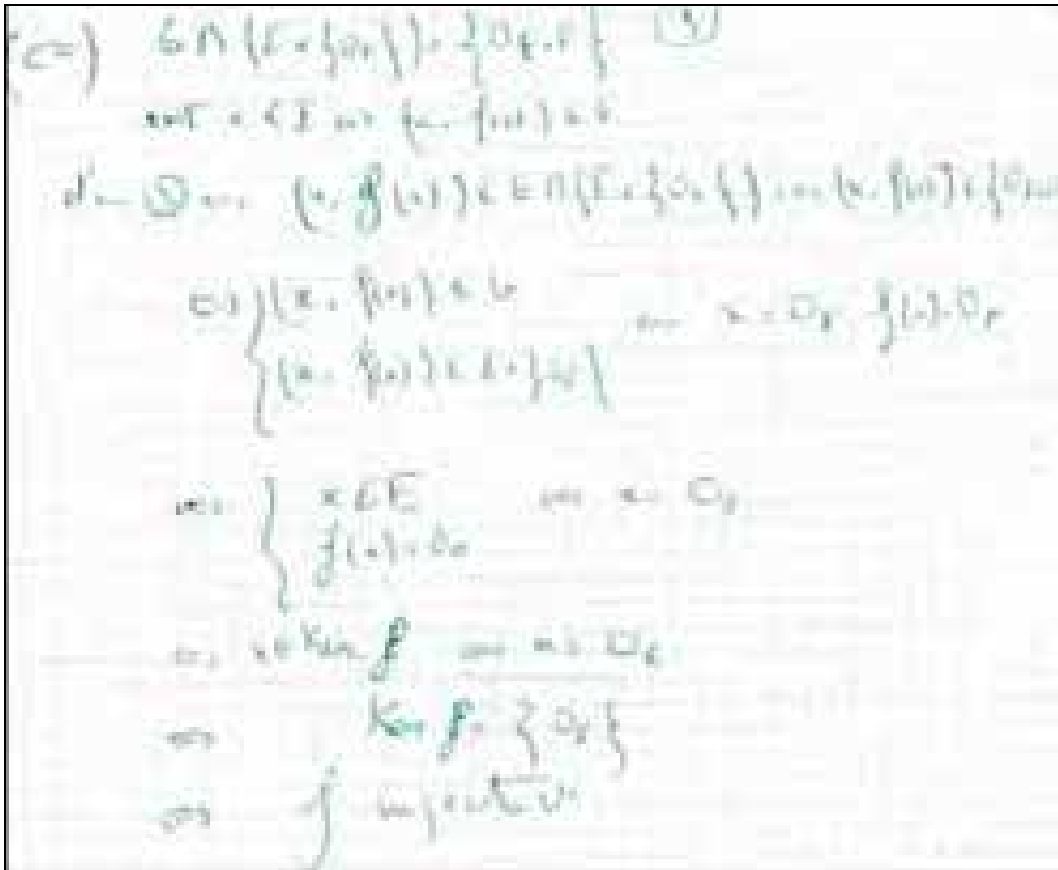 (⇐) G ∩ (E × {0_E}) = {0_E×F} ①
soit x ∈ E ⇒ (x, f(x)) ∈ G
d'où ① ⇔ (x, f(x)) ∈ G ∩ (E × {0_F}) ⇔ (x, f(x)) ∈ {0_E×F
⇔ { (x, f(x)) ∈ G
(x, f(x)) ∈ E × {0_F} ⇔ x = 0_E f(x) = 0_F
⇔ { x ∈ E ⇔ x = 0_E
f(x) = 0_F
⇔ x ∈ Ker f ⇔ x = 0_E
⇔ Ker f = {0_E}
⇔ f injective